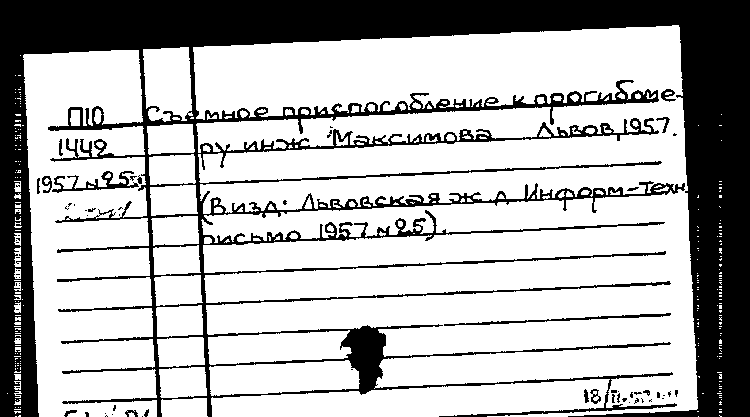 П10 Съемное приспособление к прогибоме-
1442 ру инж Максимова Львов, 1957.
1957 №25
(В изд: Львовская ж д Информ-техн
письмо 1957 №25).
18/